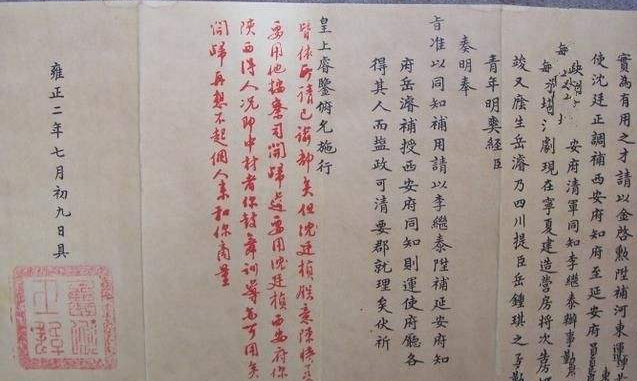 實為有用之才請以金啓勲陞補河東運
使沈廷正調補西安府知府至延安府
安府清軍同知李繼泰辦事勤
劇現在寧夏建造營房將次告
竣又廕生岳濬乃四川提臣岳鍾琪之子
青年明爽經臣
奏明奉
旨准以同知補用請以李繼泰陞補延安府知
府岳濬補授西安府同知則運使府廳各
得其人而鹽政可清要郡就理矣伏祈
皇上睿鑒俯允施行
皆依所請已諭部矣但沈廷楨
要用他按察司開歸道要用沈廷楨西安府你
陝西得人況即中材者你鼓舞訓導亦可用矣
開歸再想不起個人來和你商量
雍正二年七月初九日具